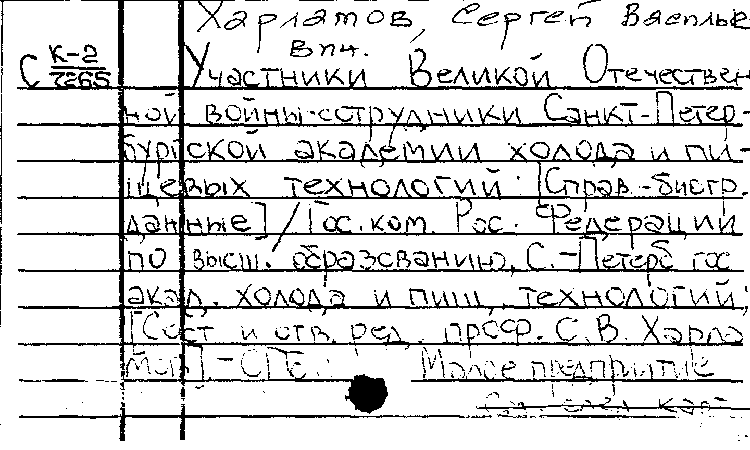 Харламов, Сергей Василье
впч.
С К-2
7265
Участники Великой Отечествен
ной войны-сотрудники Санкт-Петер-
бургской академии холода и пи-
щевых технологий: [Справ.-биогр.
данные] / Гос. ком. Рос. Федерации
по высш. образованию, С.-Петерб гос
акад. холода и пищ. технологий;
[Сост и отв. ред. проф. С. В. Харла
мов]. - СПб.: Малое предприятие
См. след карт